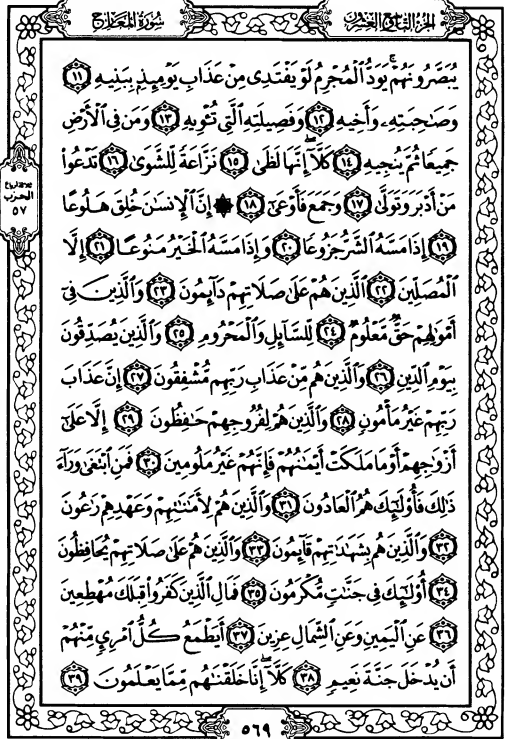 سُورَةُ المَعَارِج
الجُزْءُ التَّاسِعُ وَالعِشْرُون
يُبَصَّرُونَهُمْ ۚ يَوَدُّ ٱلْمُجْرِمُ لَوْ يَفْتَدِى مِنْ عَذَابِ يَوْمِئِذٍۭ بِبَنِيهِ ١١
وَصَٰحِبَتِهِۦ وَأَخِيهِ ١٢ وَفَصِيلَتِهِ ٱلَّتِى تُـْٔوِيهِ ١٣ وَمَن فِى ٱلْأَرْضِ
جَمِيعًا ثُمَّ يُنجِيهِ ١٤ كَلَّآ ۖ إِنَّهَا لَظَىٰ ١٥ نَزَّاعَةً لِّلشَّوَىٰ ١٦ تَدْعُوا۟
مَنْ أَدْبَرَ وَتَوَلَّىٰ ١٧ وَجَمَعَ فَأَوْعَىٰٓ ١٨ ۞ إِنَّ ٱلْإِنسَٰنَ خُلِقَ هَلُوعًا
١٩ إِذَا مَسَّهُ ٱلشَّرُّ جَزُوعًا ٢٠ وَإِذَا مَسَّهُ ٱلْخَيْرُ مَنُوعًا ٢١ إِلَّا
ٱلْمُصَلِّينَ ٢٢ ٱلَّذِينَ هُمْ عَلَىٰ صَلَاتِهِمْ دَآئِمُونَ ٢٣ وَٱلَّذِينَ فِىٓ
أَمْوَٰلِهِمْ حَقٌّ مَّعْلُومٌ ٢٤ لِّلسَّآئِلِ وَٱلْمَحْرُومِ ٢٥ وَٱلَّذِينَ يُصَدِّقُونَ
بِيَوْمِ ٱلدِّينِ ٢٦ وَٱلَّذِينَ هُم مِّنْ عَذَابِ رَبِّهِم مُّشْفِقُونَ ٢٧ إِنَّ عَذَابَ
رَبِّهِمْ غَيْرُ مَأْمُونٍ ٢٨ وَٱلَّذِينَ هُمْ لِفُرُوجِهِمْ حَٰفِظُونَ ٢٩ إِلَّا عَلَىٰٓ
أَزْوَٰجِهِمْ أَوْ مَا مَلَكَتْ أَيْمَٰنُهُمْ فَإِنَّهُمْ غَيْرُ مَلُومِينَ ٣٠ فَمَنِ ٱبْتَغَىٰ وَرَآءَ
ذَٰلِكَ فَأُو۟لَٰٓئِكَ هُمُ ٱلْعَادُونَ ٣١ وَٱلَّذِينَ هُمْ لِأَمَٰنَٰتِهِمْ وَعَهْدِهِمْ رَٰعُونَ
٣٢ وَٱلَّذِينَ هُم بِشَهَٰدَٰتِهِمْ قَآئِمُونَ ٣٣ وَٱلَّذِينَ هُمْ عَلَىٰ صَلَاتِهِمْ يُحَافِظُونَ
٣٤ أُو۟لَٰٓئِكَ فِى جَنَّٰتٍ مُّكْرَمُونَ ٣٥ فَمَالِ ٱلَّذِينَ كَفَرُوا۟ قِبَلَكَ مُهْطِعِينَ
٣٦ عَنِ ٱلْيَمِينِ وَعَنِ ٱلشِّمَالِ عِزِينَ ٣٧ أَيَطْمَعُ كُلُّ ٱمْرِئٍ مِّنْهُمْ
أَن يُدْخَلَ جَنَّةَ نَعِيمٍ ٣٨ كَلَّآ ۖ إِنَّا خَلَقْنَٰهُم مِّمَّا يَعْلَمُونَ ٣٩
الحزب
٥٧
٥٦٩